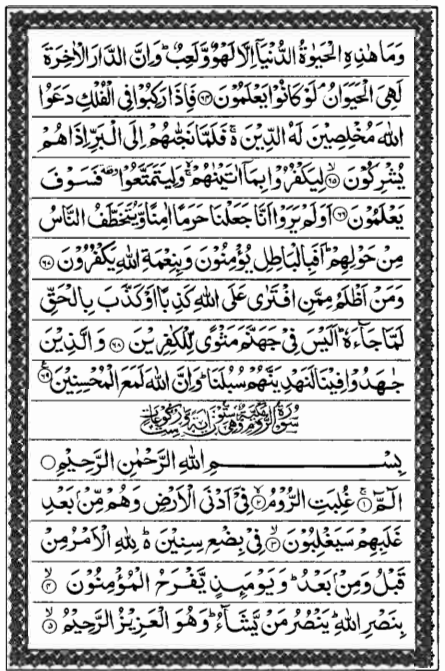 وَمَا هٰذِهِ الْحَيٰوةُ الدُّنْيَآ اِلَّا لَهْوٌ وَّلَعِبٌ ؕ وَاِنَّ الدَّارَ الْاٰخِرَةَ
لَهِىَ الْحَيَوَانُ ۘ لَوْ كَانُوْا يَعْلَمُوْنَ ۝۶۴ فَاِذَا رَكِبُوْا فِى الْفُلْكِ دَعَوُا
اللّٰهَ مُخْلِصِيْنَ لَهُ الدِّيْنَ ۚ فَلَمَّا نَجّٰىهُمْ اِلَى الْبَرِّ اِذَا هُمْ
يُشْرِكُوْنَ ۝۶۵ۙ لِيَكْفُرُوْا بِمَآ اٰتَيْنٰهُمْ ۚۙ وَلِيَتَمَتَّعُوْا ۥ فَسَوْفَ
يَعْلَمُوْنَ ۝۶۶ اَوَلَمْ يَرَوْا اَنَّا جَعَلْنَا حَرَمًا اٰمِنًا وَّيُتَخَطَّفُ النَّاسُ
مِنْ حَوْلِهِمْ ؕ اَفَبِالْبَاطِلِ يُؤْمِنُوْنَ وَبِنِعْمَةِ اللّٰهِ يَكْفُرُوْنَ ۝۶۷
وَمَنْ اَظْلَمُ مِمَّنِ افْتَرٰى عَلَى اللّٰهِ كَذِبًا اَوْ كَذَّبَ بِالْحَقِّ
لَمَّا جَآءَهٗ ؕ اَلَيْسَ فِىْ جَهَنَّمَ مَثْوًى لِّلْكٰفِرِيْنَ ۝۶۸ وَالَّذِيْنَ
جٰهَدُوْا فِيْنَا لَنَهْدِيَنَّهُمْ سُبُلَنَا ؕ وَاِنَّ اللّٰهَ لَمَعَ الْمُحْسِنِيْنَ ۝۶۹
سُوْرَةُ الرُّوْمِ
بِسْمِ اللّٰهِ الرَّحْمٰنِ الرَّحِيْمِ ۝
الٓمّٓ ۝۱ۚ غُلِبَتِ الرُّوْمُ ۝۲ۙ فِىْٓ اَدْنَى الْاَرْضِ وَهُمْ مِّنْۢ بَعْدِ
غَلَبِهِمْ سَيَغْلِبُوْنَ ۝۳ۙ فِىْ بِضْعِ سِنِيْنَ ؕ۬ لِلّٰهِ الْاَمْرُ مِنْ
قَبْلُ وَمِنْۢ بَعْدُ ؕ وَيَوْمَئِذٍ يَّفْرَحُ الْمُؤْمِنُوْنَ ۝۴ۙ
بِنَصْرِ اللّٰهِ ؕ يَنْصُرُ مَنْ يَّشَآءُ ؕ وَهُوَ الْعَزِيْزُ الرَّحِيْمُ ۝۵ۙ